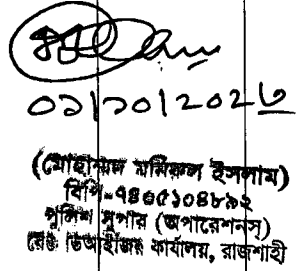 ০১/১০/২০২৩
(মোহাম্মদ শফিকুল ইসলাম)
বিপি-৭৪০৫১০৪৮৯২
পুলিশ সুপার (অপারেশনস্)
রেঞ্জ ডিআইজির কার্যালয়, রাজশাহী